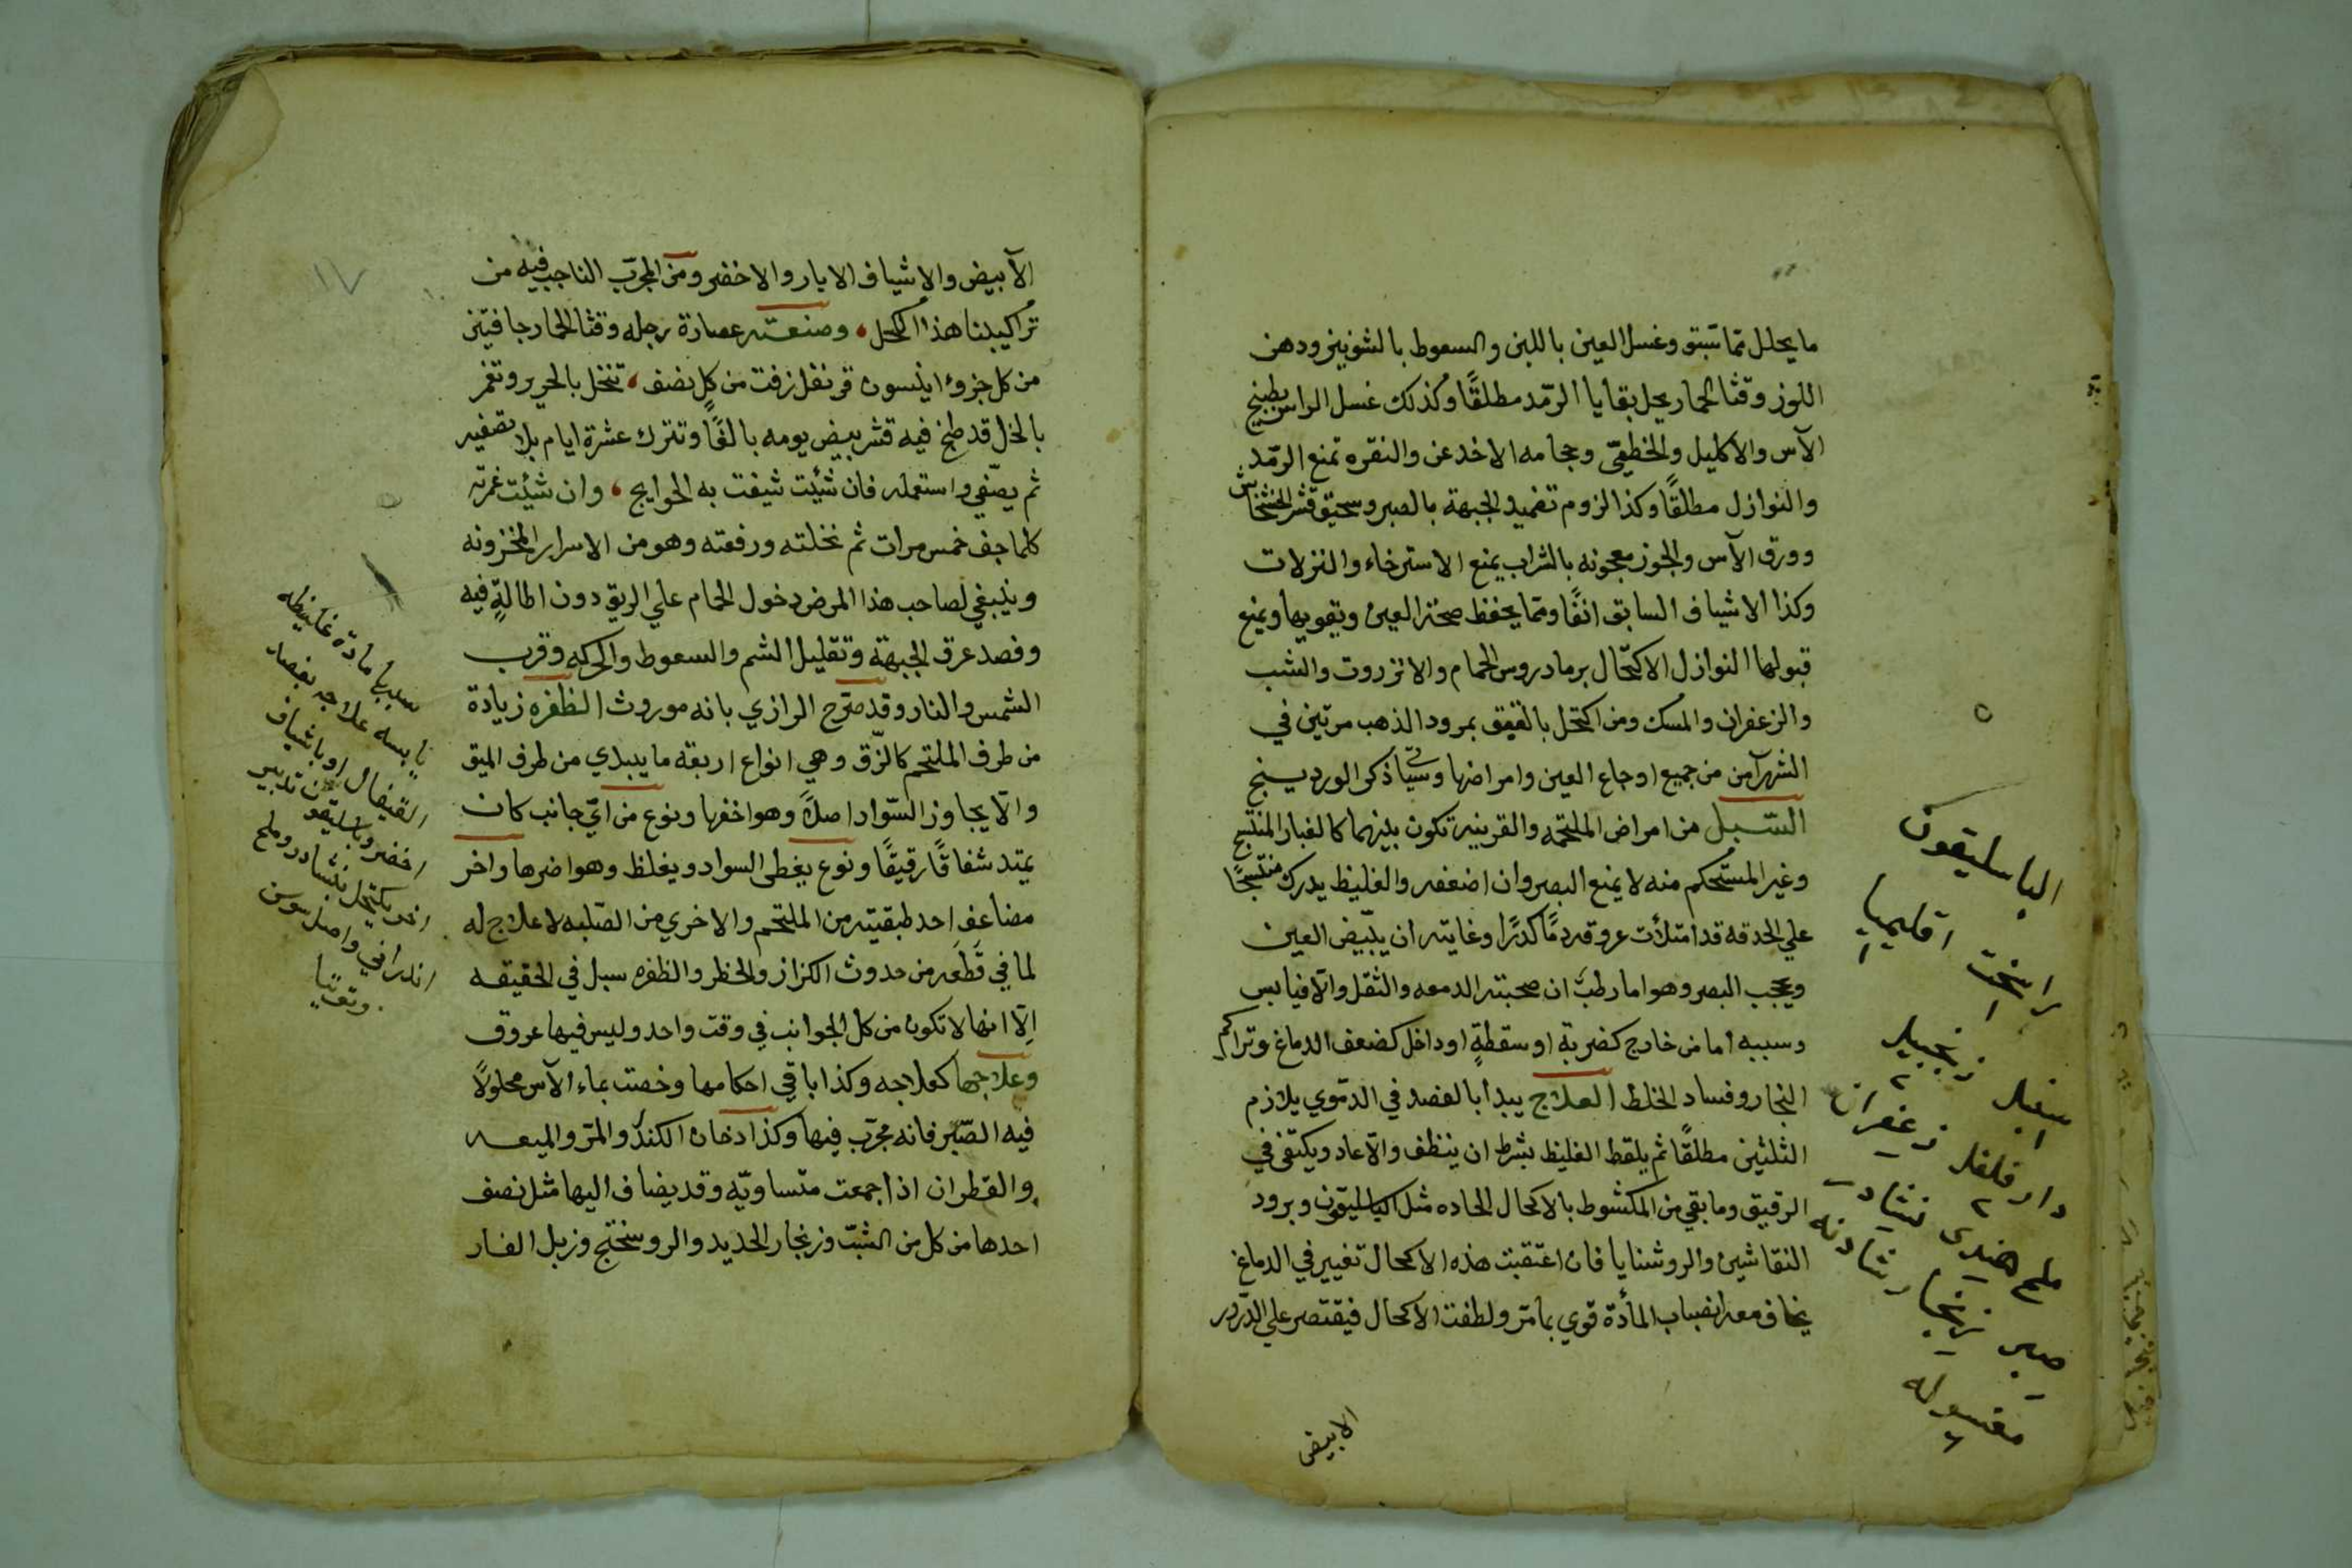 ما يحلل مما سبق وغسل العين باللبن والسعوط بالشونيز ودهن
اللوز وقثا الحمار يحل بقايا الرمد مطلقًا وكذلك غسل الراس بطبيخ
الآس والاكليل والخطمى وحجامه الاخدعن والنقره تمنع الرمد
والنوازل مطلقًا وكذا لزوم تضميد الجبهة بالصبر وسحيق قشر الخشخاش
وورق الآس والجوز معجونه بالشراب يمنع الاسترخاء والنزلات
وكذا الاشياف السابق انفًا ومما يحفظ صحة العين ويقويها ويمنع
قبولها النوازل الاكتحال برماد روس الحمام والانزروت والشب
والزعفران والمسك ومن اكتحل بالعقيق بمرود الذهب مرتين في
الشهر آمن من جميع اوجاع العين وامراضها وسياتى ذكر الوردينج
السبل من امراض الملتحمه والقرنيه تكون بينهما كالغبار المنتسج
وغير المستحكم منه لا يمنع البصر وان اضعفه والغليظ يدرك منتسجًا
علي الحدقه قد امتلأت عروقه دمًا كدرًا وغايته ان يبيض العين
ويحجب البصر وهو اما رطب ان صحبته الدمعه والثقل والا فيابس
وسببه اما من خارج كضربة او سقطةٍ او داخل كضعف الدماغ وتراكم
البخار وفساد الخلط العلاج يبدأ بالفصد في الدموي يلازم
الثلثين مطلقًا ثم يلقط الغليظ بشرط ان ينظف والا عاد ويكتفى في
الرقيق وما بقي من المكشوط بالاكحال الحاده مثل الباسليقون وبرود
النقاشين والروشنايا فان اعتقبت هذه الاكحال تغيير في الدماغ
يخاف معه انصباب المأدة قوي بما مر ولطفت الاكحال فيقتصر علي الذرور
الابيض
الباسليقون
راسخت اقليميا
سنبل زنجبيل
دار فلفل زعفران
ملح هندى نشادر
صبر زنجار شادنه
مغسوله
الأبيض والاشياف الابار والاخضر ومن المجرب الناجب فيه من
تراكيبنا هذا الكحل وصنعته عصارة رجله وقثا الحمار جافين
من كل جزوء اينسون قرنفل زفت من كلٍ نصف تنخل بالحرير وتغمر
بالخل قد طبخ فيه قشر بيض يومه بالغًا وتترك عشرة ايام بلا تصفيه
ثم يصفي واستعمله فان شئيت شيفت به الحوايج وان شئيت غمرته
كلما جف خمس مرات ثم نخلته ورفعته وهو من الاسرار المخزونه
وينبغي لصاحب هذا المرض دخول الحمام علي الريق دون اطالةٍ فيه
وفصد عرق الجبهة وتقليل الشم والسعوط والحركه وقرب
الشمس والنار وقد صرح الرازي بانه موروث الظفره زيادة
من طرف الملتحم كالزق وهي انواع اربعه ما يبدي من طرف الميق
والا يجاوز السواد اصلاً وهو اخفها ونوع من اي جانب كان
يمتد شفاقًا رقيقًا ونوع يغطى السواد ويغلظ وهو اضرها واخر
مضاعف احد طبقيته من الملتحم والاخري من الصلبه لا علاج له
لما في قطعه من حدوث الكزاز والخطر والظفره سبل في الحقيقه
الّا انها لا تكون من كل الجوانب في وقت واحد وليس فيها عروق
وعلاجها كعلاجه وكذا باقي احكامها وخصت بماء الآس محلولاً
فيه الصبر فانه مجرب فيها وكذا دخان الكندر والمر والميعه
والقطران اذا جمعت متساويه وقد يضاف اليها مثل نصف
احدها من كل من الشب وزنجار الحديد والروسختج وزبل الفار
١٧
سببها مادة غليظه
يابسه علاجه بفصد
القيفال او باشياف
اخضر وباسليقون